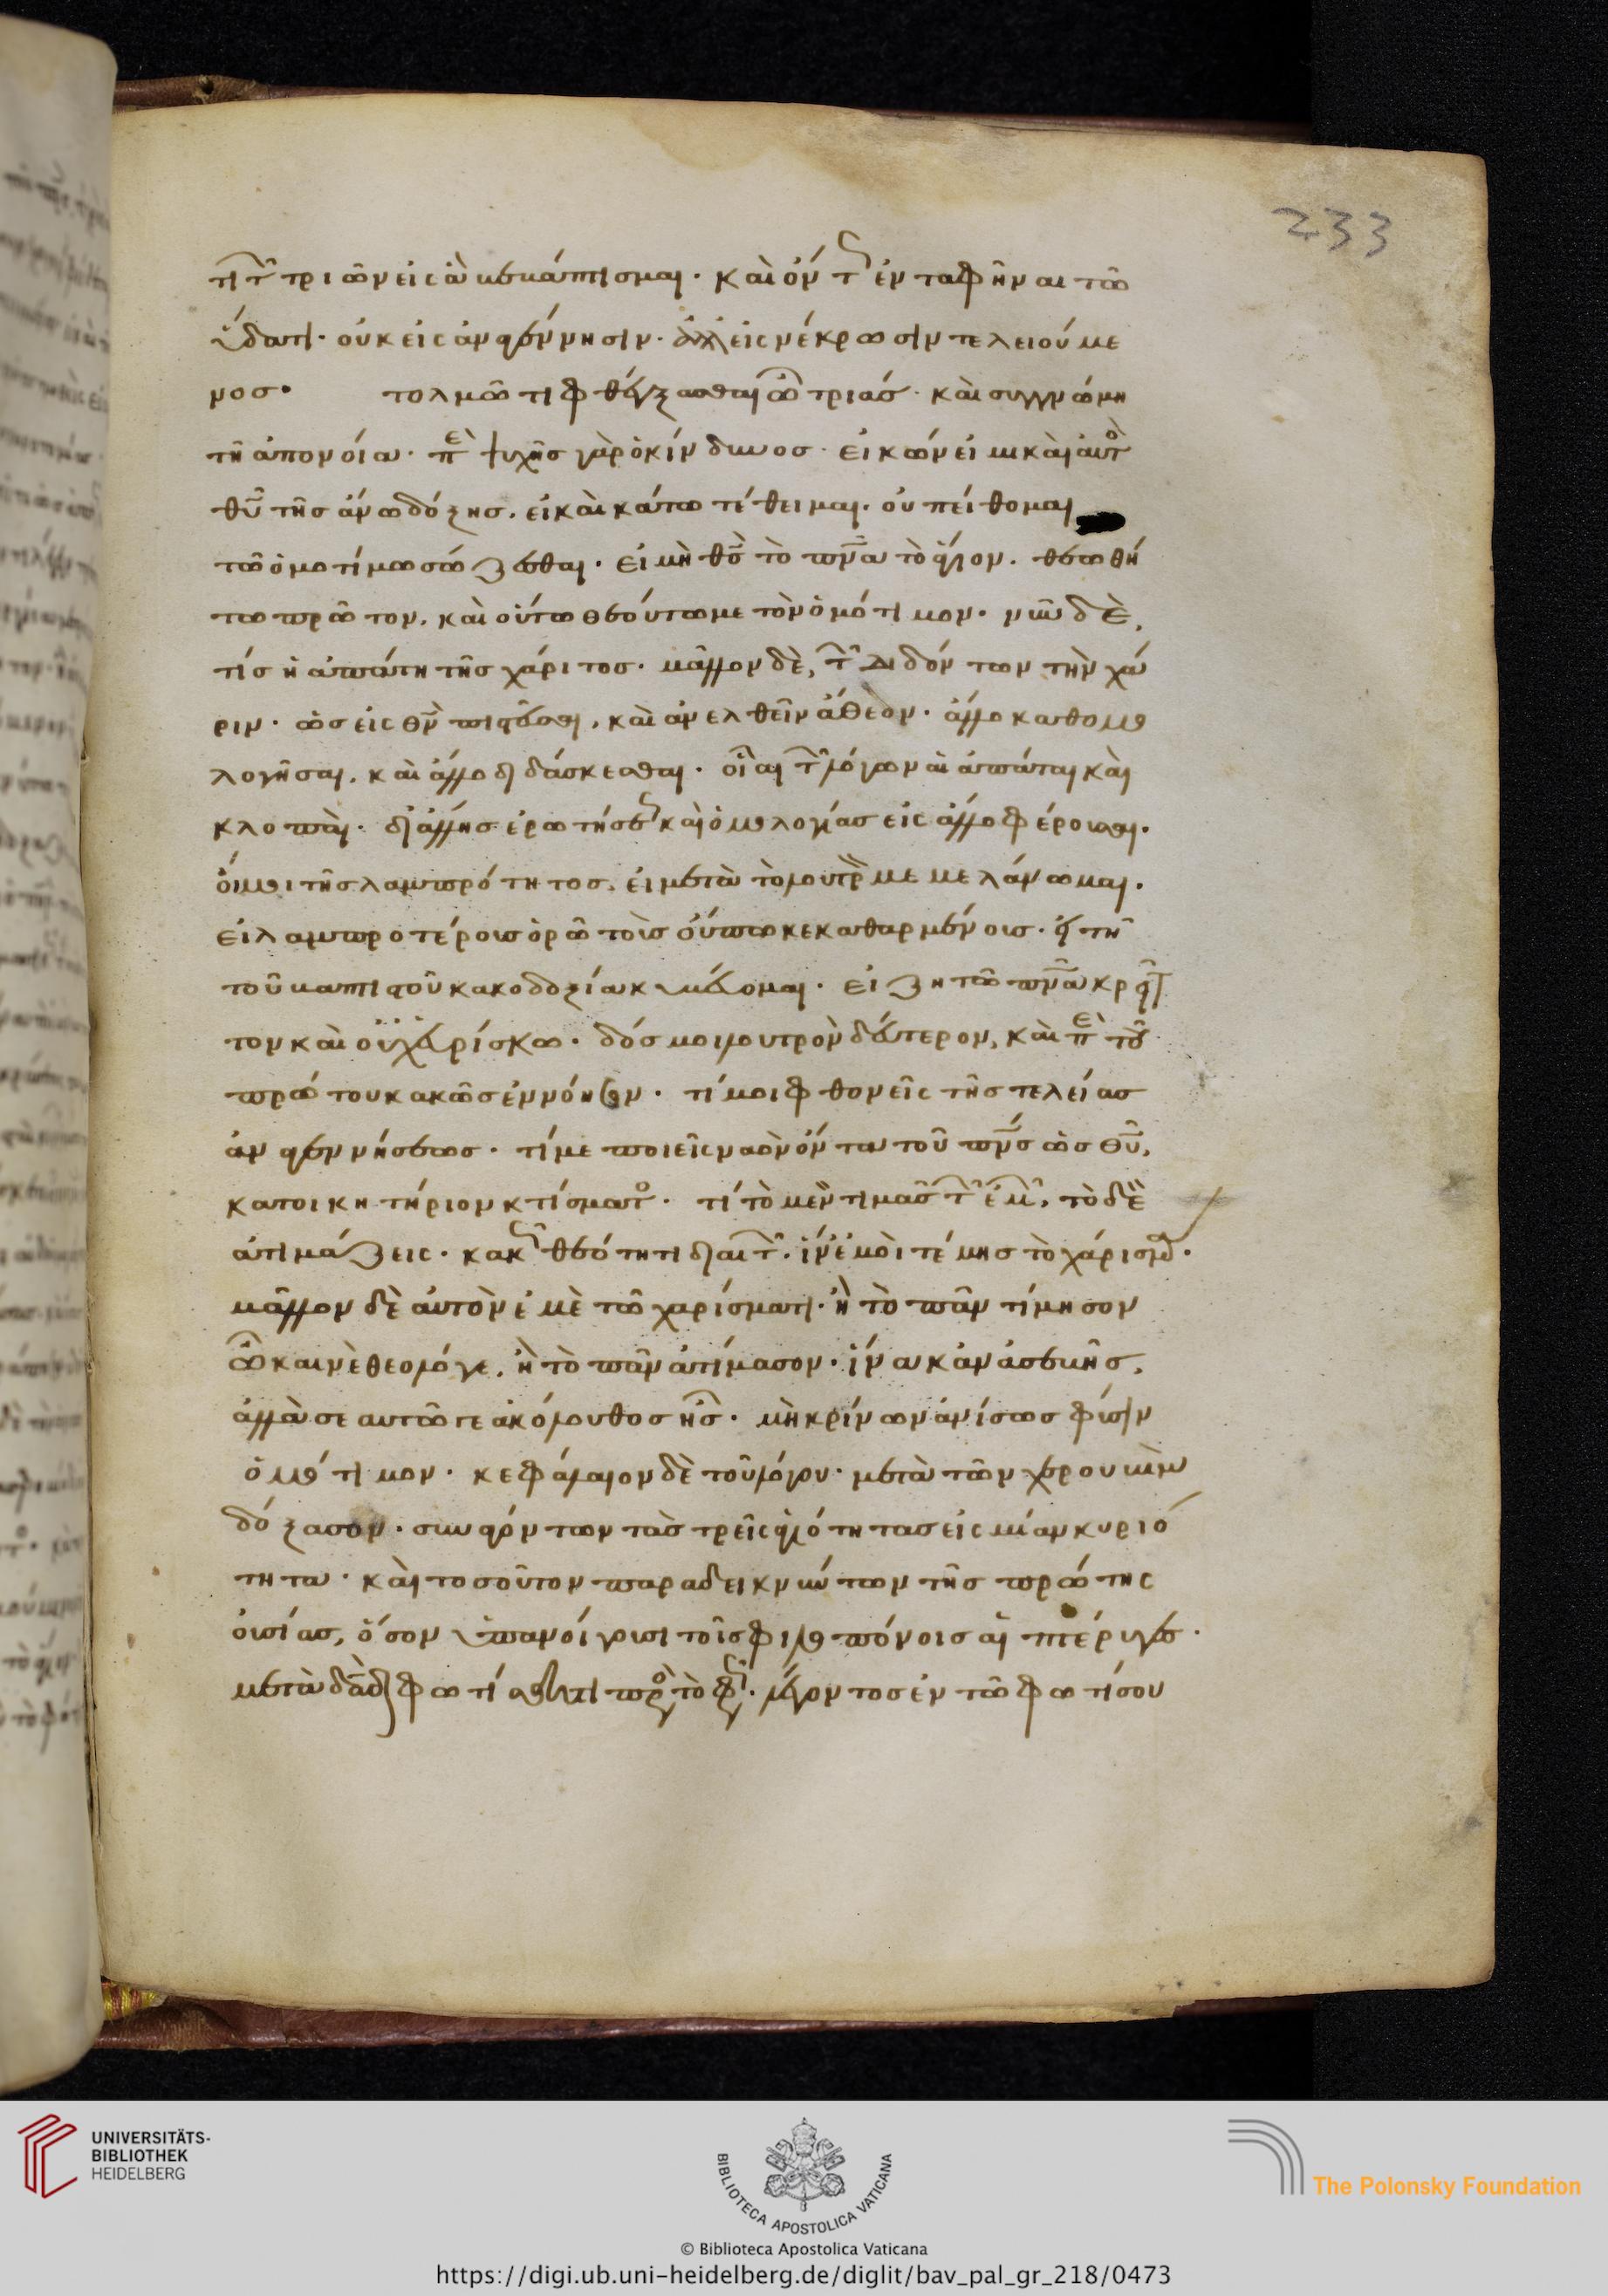 233
τι τ τριῶν εἰς ἃ βεβάπτισμαι· καὶ ὄντ ἐνταφῆναι τῶ
ὕδατι· οὐκ εἰς ἀναγέννησιν· ἀλλ εἰς νέκρωσιν τελειούμε
νοσ· τολμῶ τι φθέγξασθαι ὦ τριάσ· καὶ συγγνώμη
τῆ ἀπονοία· πε ψυχῆσ γὰρ ὁ κίνδυνοσ· εἰκών εἰμι καὶ αὐτὸ
θῦ τῆσ ἄνω δόξησ, εἰ καὶ κάτω τέθειμαι. οὐ πείθομαι
τῶ ὁμοτίμω σώζεσθαι· εἰ μὴ θσ τὸ πνα τὸ ἅγιον. θεωθή
τω πρῶτον, καὶ οὕτω θεούτω με τὸν ὁμότιμον· νῦν δὲ,
τίσ ἡ ἀπάτη τῆσ χάριτοσ· μᾶλλον δὲ, τ διδόντων τὴν χά
ριν· ὡσ εἰς θν πιστεῦσαι, καὶ ἀνελθεῖν ἄθεον· ἄλλο καθομο
λογῆσαι, καὶ ἄλλο διδάσκεσθαι· οἷαι τ λόγων αἱ ἀπάται καὶ
κλοπαὶ· δι ἄλλησ ἐρωτήσε καὶ ὁμολογίασ εἰς ἄλλο φέρουσαι.
οἴμοι τῆσ λαμπρότητοσ, εἰ μετὰ τὸ λουτρ με μελάνωμαι.
εἰ λαμπροτέρουσ ὁρῶ τοὺσ οὔπω κεκαθαρμένουσ· εἰ τῆ
τοῦ βαπτιστοῦ κακοδοξία κυβεύομαι· εἰ ζητῶ πνα κρεῖτ
τον καὶ οὐχ εὑρίσκω· δόσ μοι λουτρὸν δεύτερον, καὶ πε τοῦ
πρώτου κακῶσ ἐννόησον· τί μοι φθονεῖς τῆσ τελείασ
ἀναγεννήσεωσ· τί με ποιεῖς ναὸν ὄντα τοῦ πνσ ὡσ θῦ,
κατοικητήριον κτίσματο· τί τὸ μὲν τιμᾶσ τ ἐμ, τὸ δὲ
ἀτιμάζεις· κακ θεότητι διαιτ, ἵν ἐμοὶ τέμησ τὸ χάρισμα·
μᾶλλον δὲ αὐτὸν ἐμὲ τῶ χαρίσματι· ἢ τὸ πᾶν τίμησον
ὦ καινὲ θεολόγε, ἢ τὸ πᾶν ἀτίμασον· ἵνα κἂν ἀσεβῆσ,
ἀλλὰ σεαυτῶ γε ἀκόλουθοσ ἦσ· μὴ κρίνων ἀνίσωσ φύσιν
ὁμότιμον· κεφάλαιον δὲ τοῦ λόγου· μετὰ τῶν χερουβὶμ
δόξασον· συναγόντων τὰσ τρεῖς ἁγιότητασ εἰς μίαν κυριό
τητα· καὶ τοσοῦτον παραδεικνύντων τῆσ πρώτης
οὐσίασ, ὅσον ὑπανοίγουσι τοῖσ φιλοπόνοισ αἱ πτέρυγε·
μετὰ δαδ φωτίσθητι πρὸ τὸ φ· λέγοντοσ ἐν τῶ φωτί σου
UNIVERSITÄTS-
BIBLIOTHEK
HEIDELBERG
BIBLIOTECA APOSTOLICA VATICANA
The Polonsky Foundation
© Biblioteca Apostolica Vaticana
https://digi.ub.uni-heidelberg.de/diglit/bav_pal_gr_218/0473